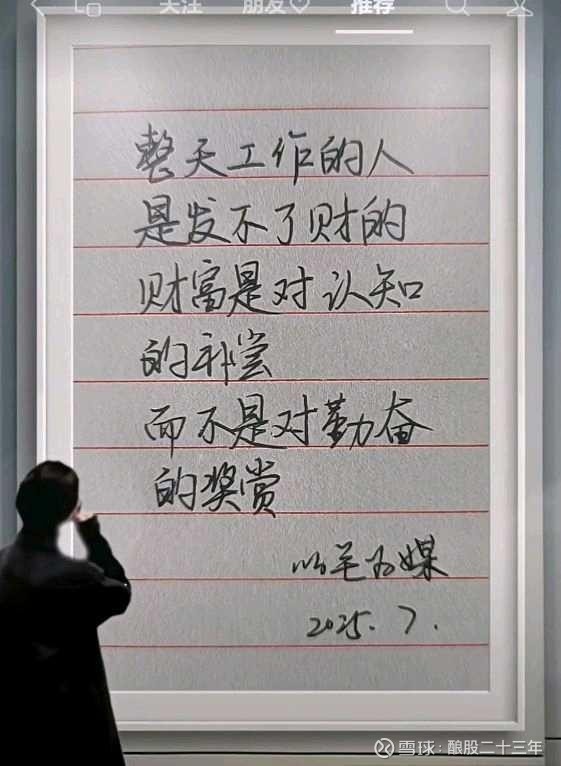 关注 朋友♡ 推荐
整天工作的人
是发不了财的
财富是对认知
的补尝
而不是对勤奋
的奖赏
以笔为媒
2025.7.
雪球：酿股二十三年